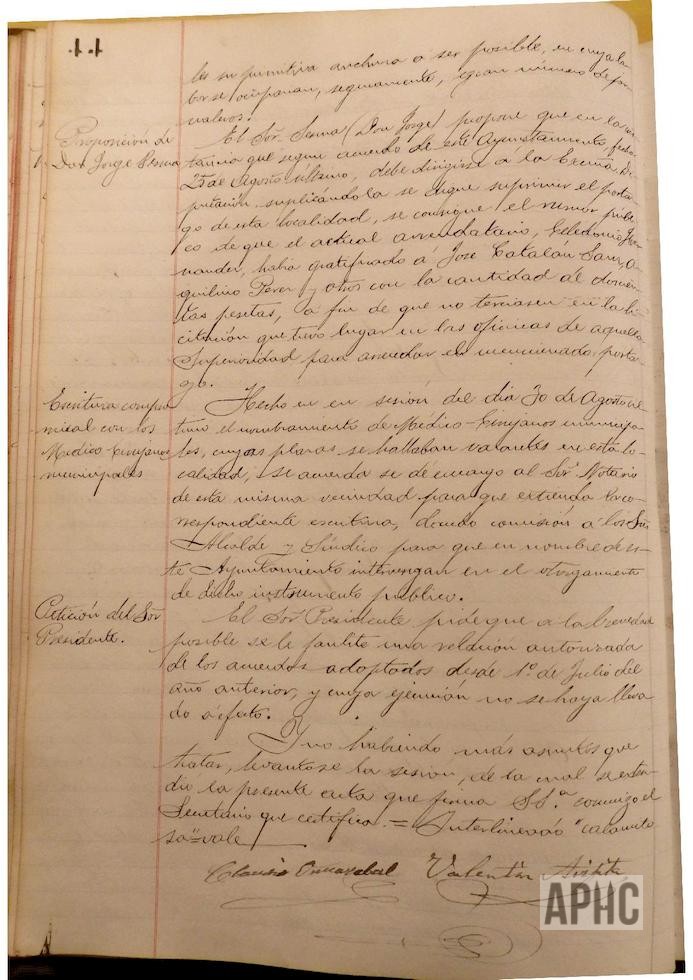 les su primitiva anchura a ser posible, en cuya la-
bor se ocuparían, seguramente, gran número de jor-
naleros.
Proposición de
Don Jorge Sesma
El Sor. Sesma (Don Jorge) propone que en la ins-
tancia que según acuerdo de este Ayuntamiento, fecha
25 de Agosto último, debe dirigirse a la Excma. Di-
putación suplicándola se digne suprimir el porta-
go de esta localidad, se consigne el rumor públi-
co de que el actual arrendatario, Celedonio
nandez, había gratificado a José Catalán Sanz, A-
quilino Perez y otros con la cantidad de doscien-
tas pesetas, a fin de que no terciasen en la li-
citación que tuvo lugar en las oficinas de aquella
Superioridad para arrendar el mencionado porta-
go.
Escritura compro-
misal con los
Médico-Cirujanos
municipales
Hecho en sesión del dia 30 de Agosto úl-
timo el nombramiento de Médico-Cirujanos municipa-
les, cuyas plazas se hallaban vacantes en esta lo-
calidad, se acuerda se dé encargo al Sor. Notario
de esta misma vecindad para que extienda la co-
rrespondiente escritura, dando comisión a los Sres
Alcalde y Síndico para que en nombre de es-
te Ayuntamiento intervengan en el otorgamiento
de dicho instrumento público.
Petición del Sor
Presidente.
El Sor. Presidente pide que a la brevedad
posible se le facilite una relación autorizada
de los acuerdos adoptados desde 1º de Julio del
año anterior, y cuya ejecución no se haya lleva-
do a efecto.
Y no habiendo más asuntos que
tratar, levantose la sesión, de la cual se exten-
dió la presente acta que firma S.Sª conmigo el
Secretario que certifico.= Interlineado "calamito
sa"=vale
Valentín
APHC